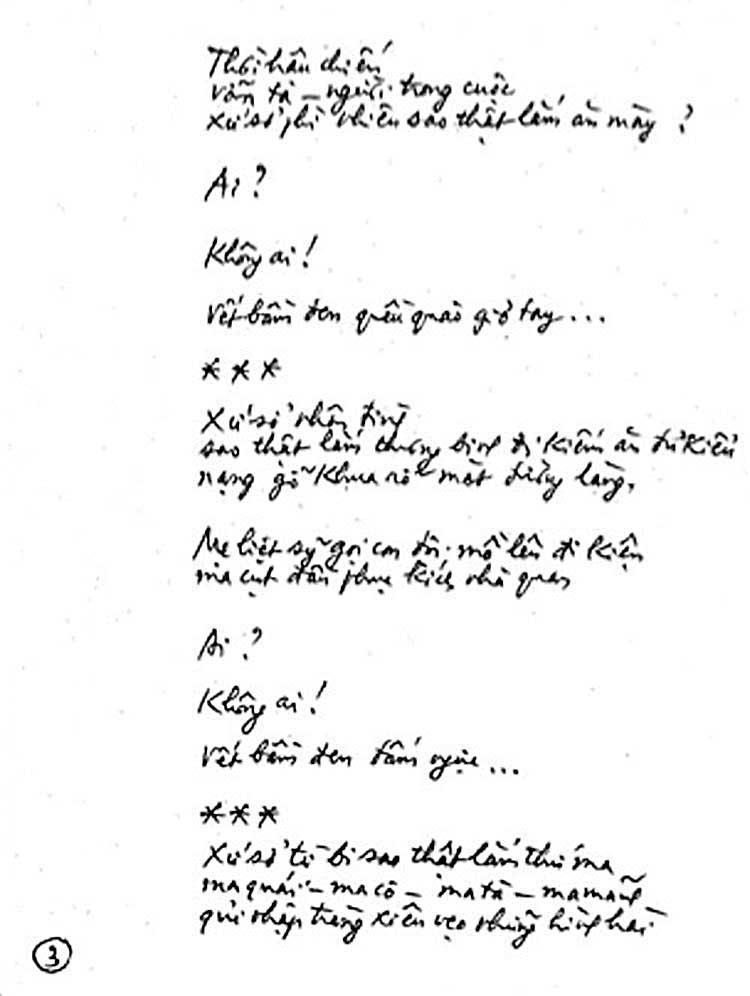 Thời hậu chiến
vẫn ta – người trong cuộc
xứ sở phì nhiêu sao thật lắm ăn mày ?
Ai ?
Không ai !
Vết bầm đen quều quào giơ tay...
***
Xứ sở nhân tình
sao thật lắm thương binh đi kiếm ăn đủ kiểu
nạng gỗ khua rỗ mặt đường làng.
Mẹ liệt sỹ gọi con đội mồ lên đi kiện
ma cụt đầu phục kích nhà quan
Ai ?
Không ai !
Vết bầm đen đấm ngực...
***
Xứ sở từ bi sao thật lắm thứ ma
ma quái – ma cô – ma tà – ma mãnh
quỉ nhập tràng xiêu vẹo những hình hài
3